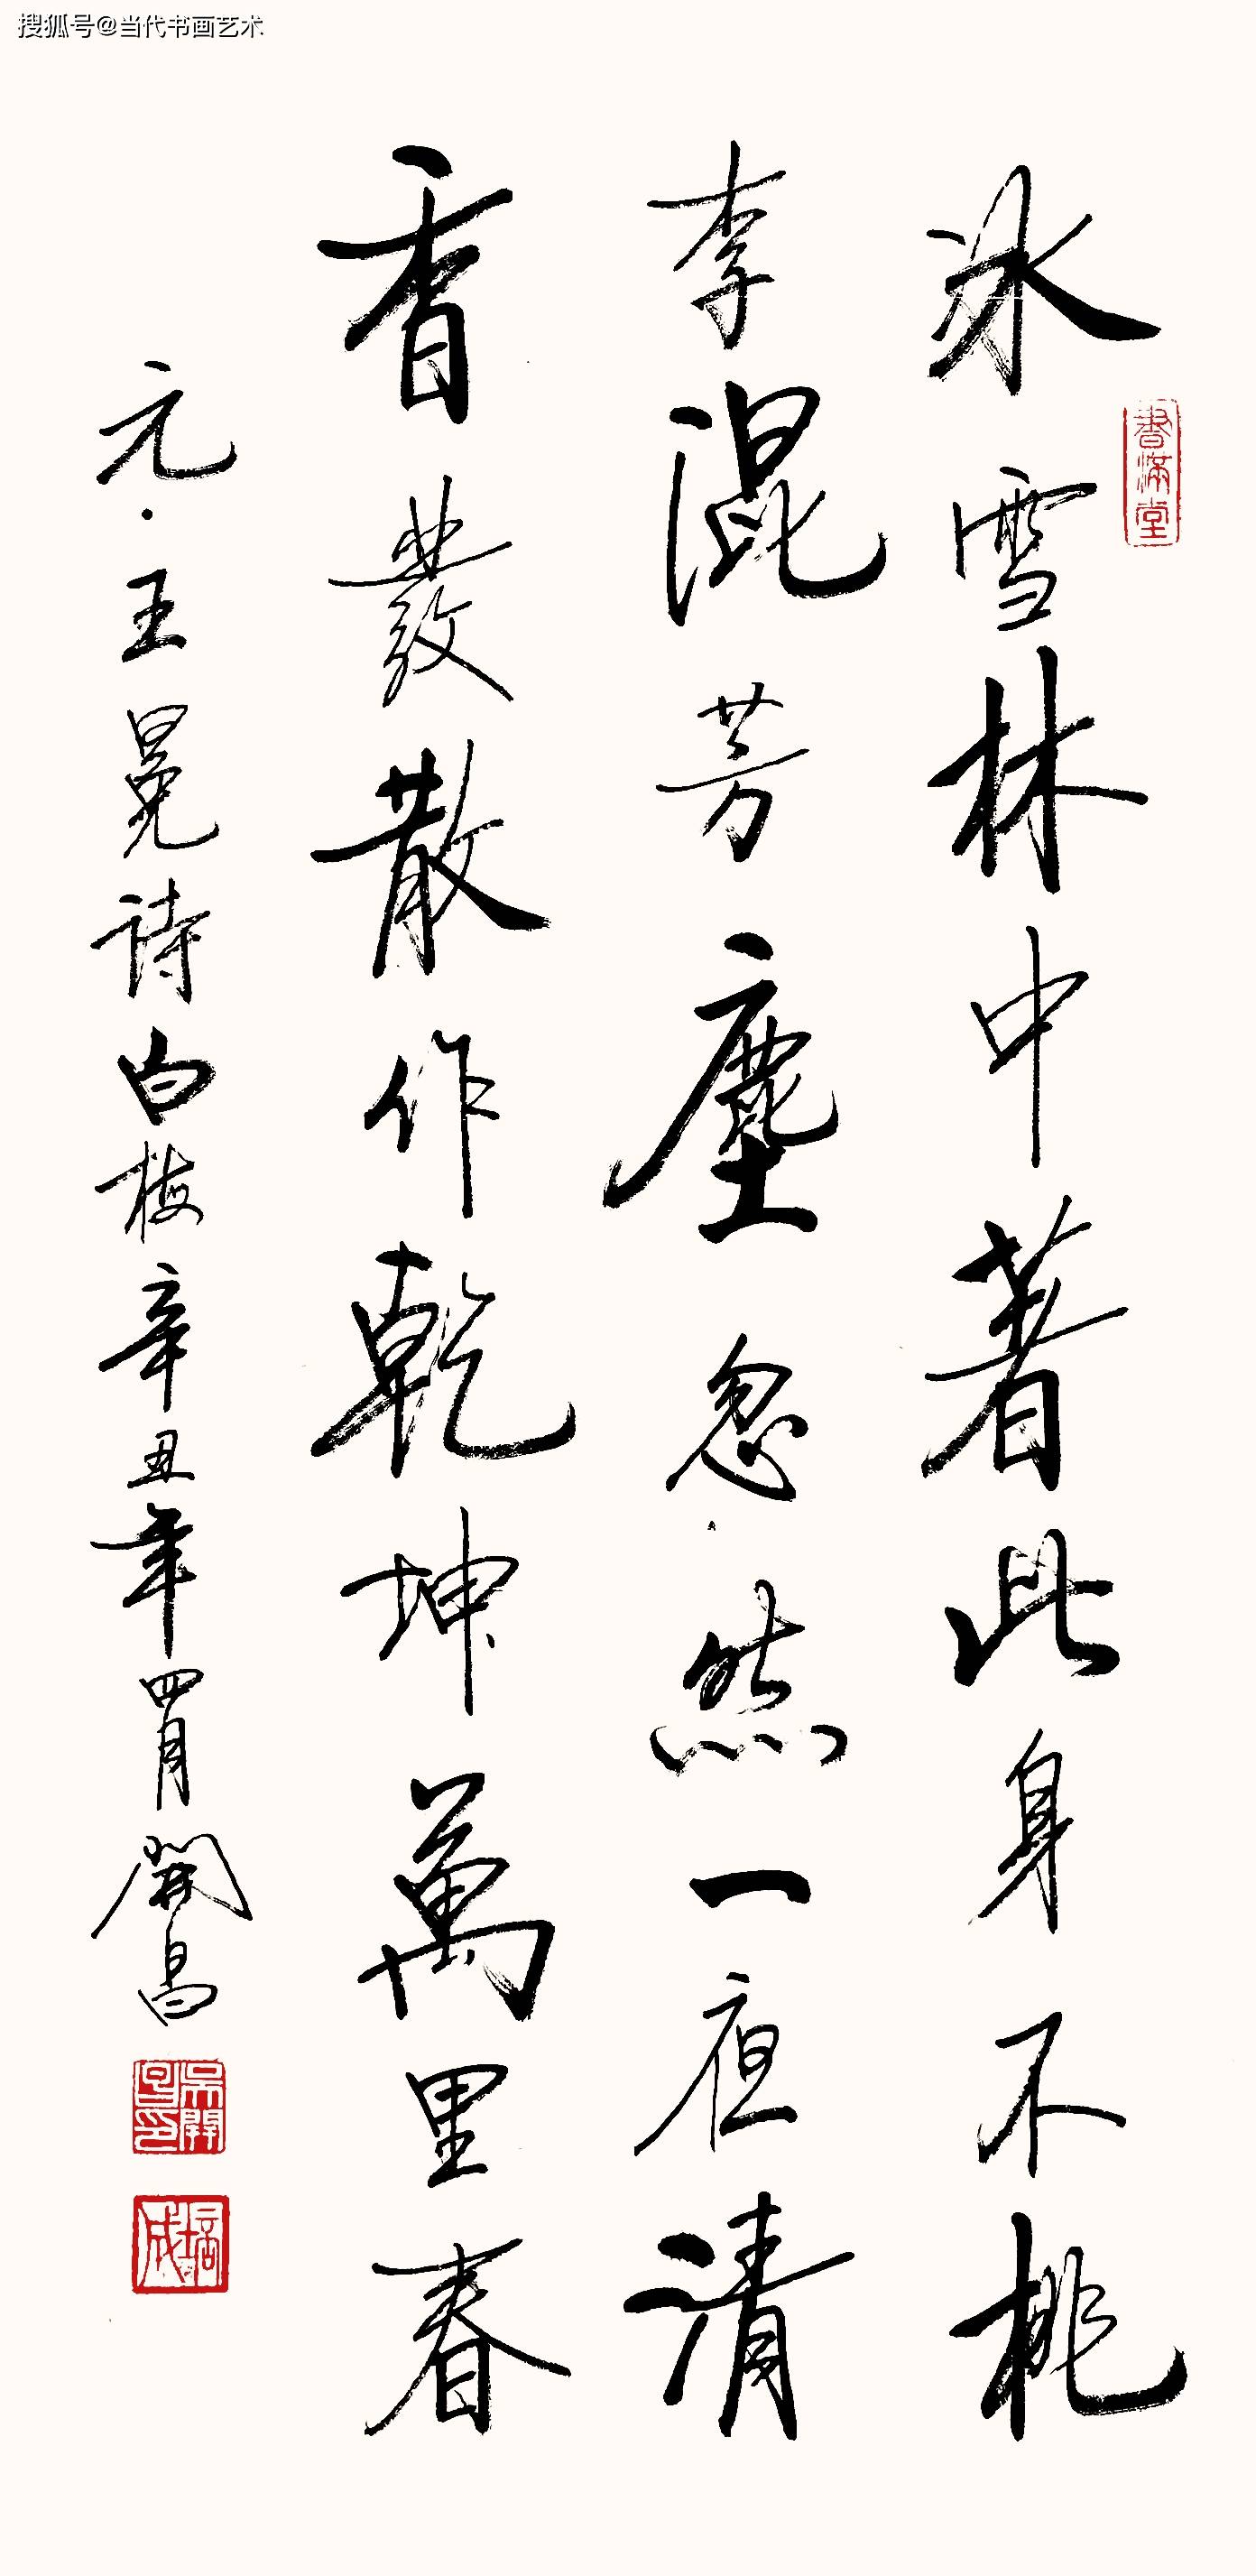 搜狐号@当代书画艺术
冰雪林中著此身不桃
李混芳塵忽然一夜清
香發散作乾坤萬里春
元·王冕詩白梅辛丑年四月開昌
書滿堂
吳開昌印